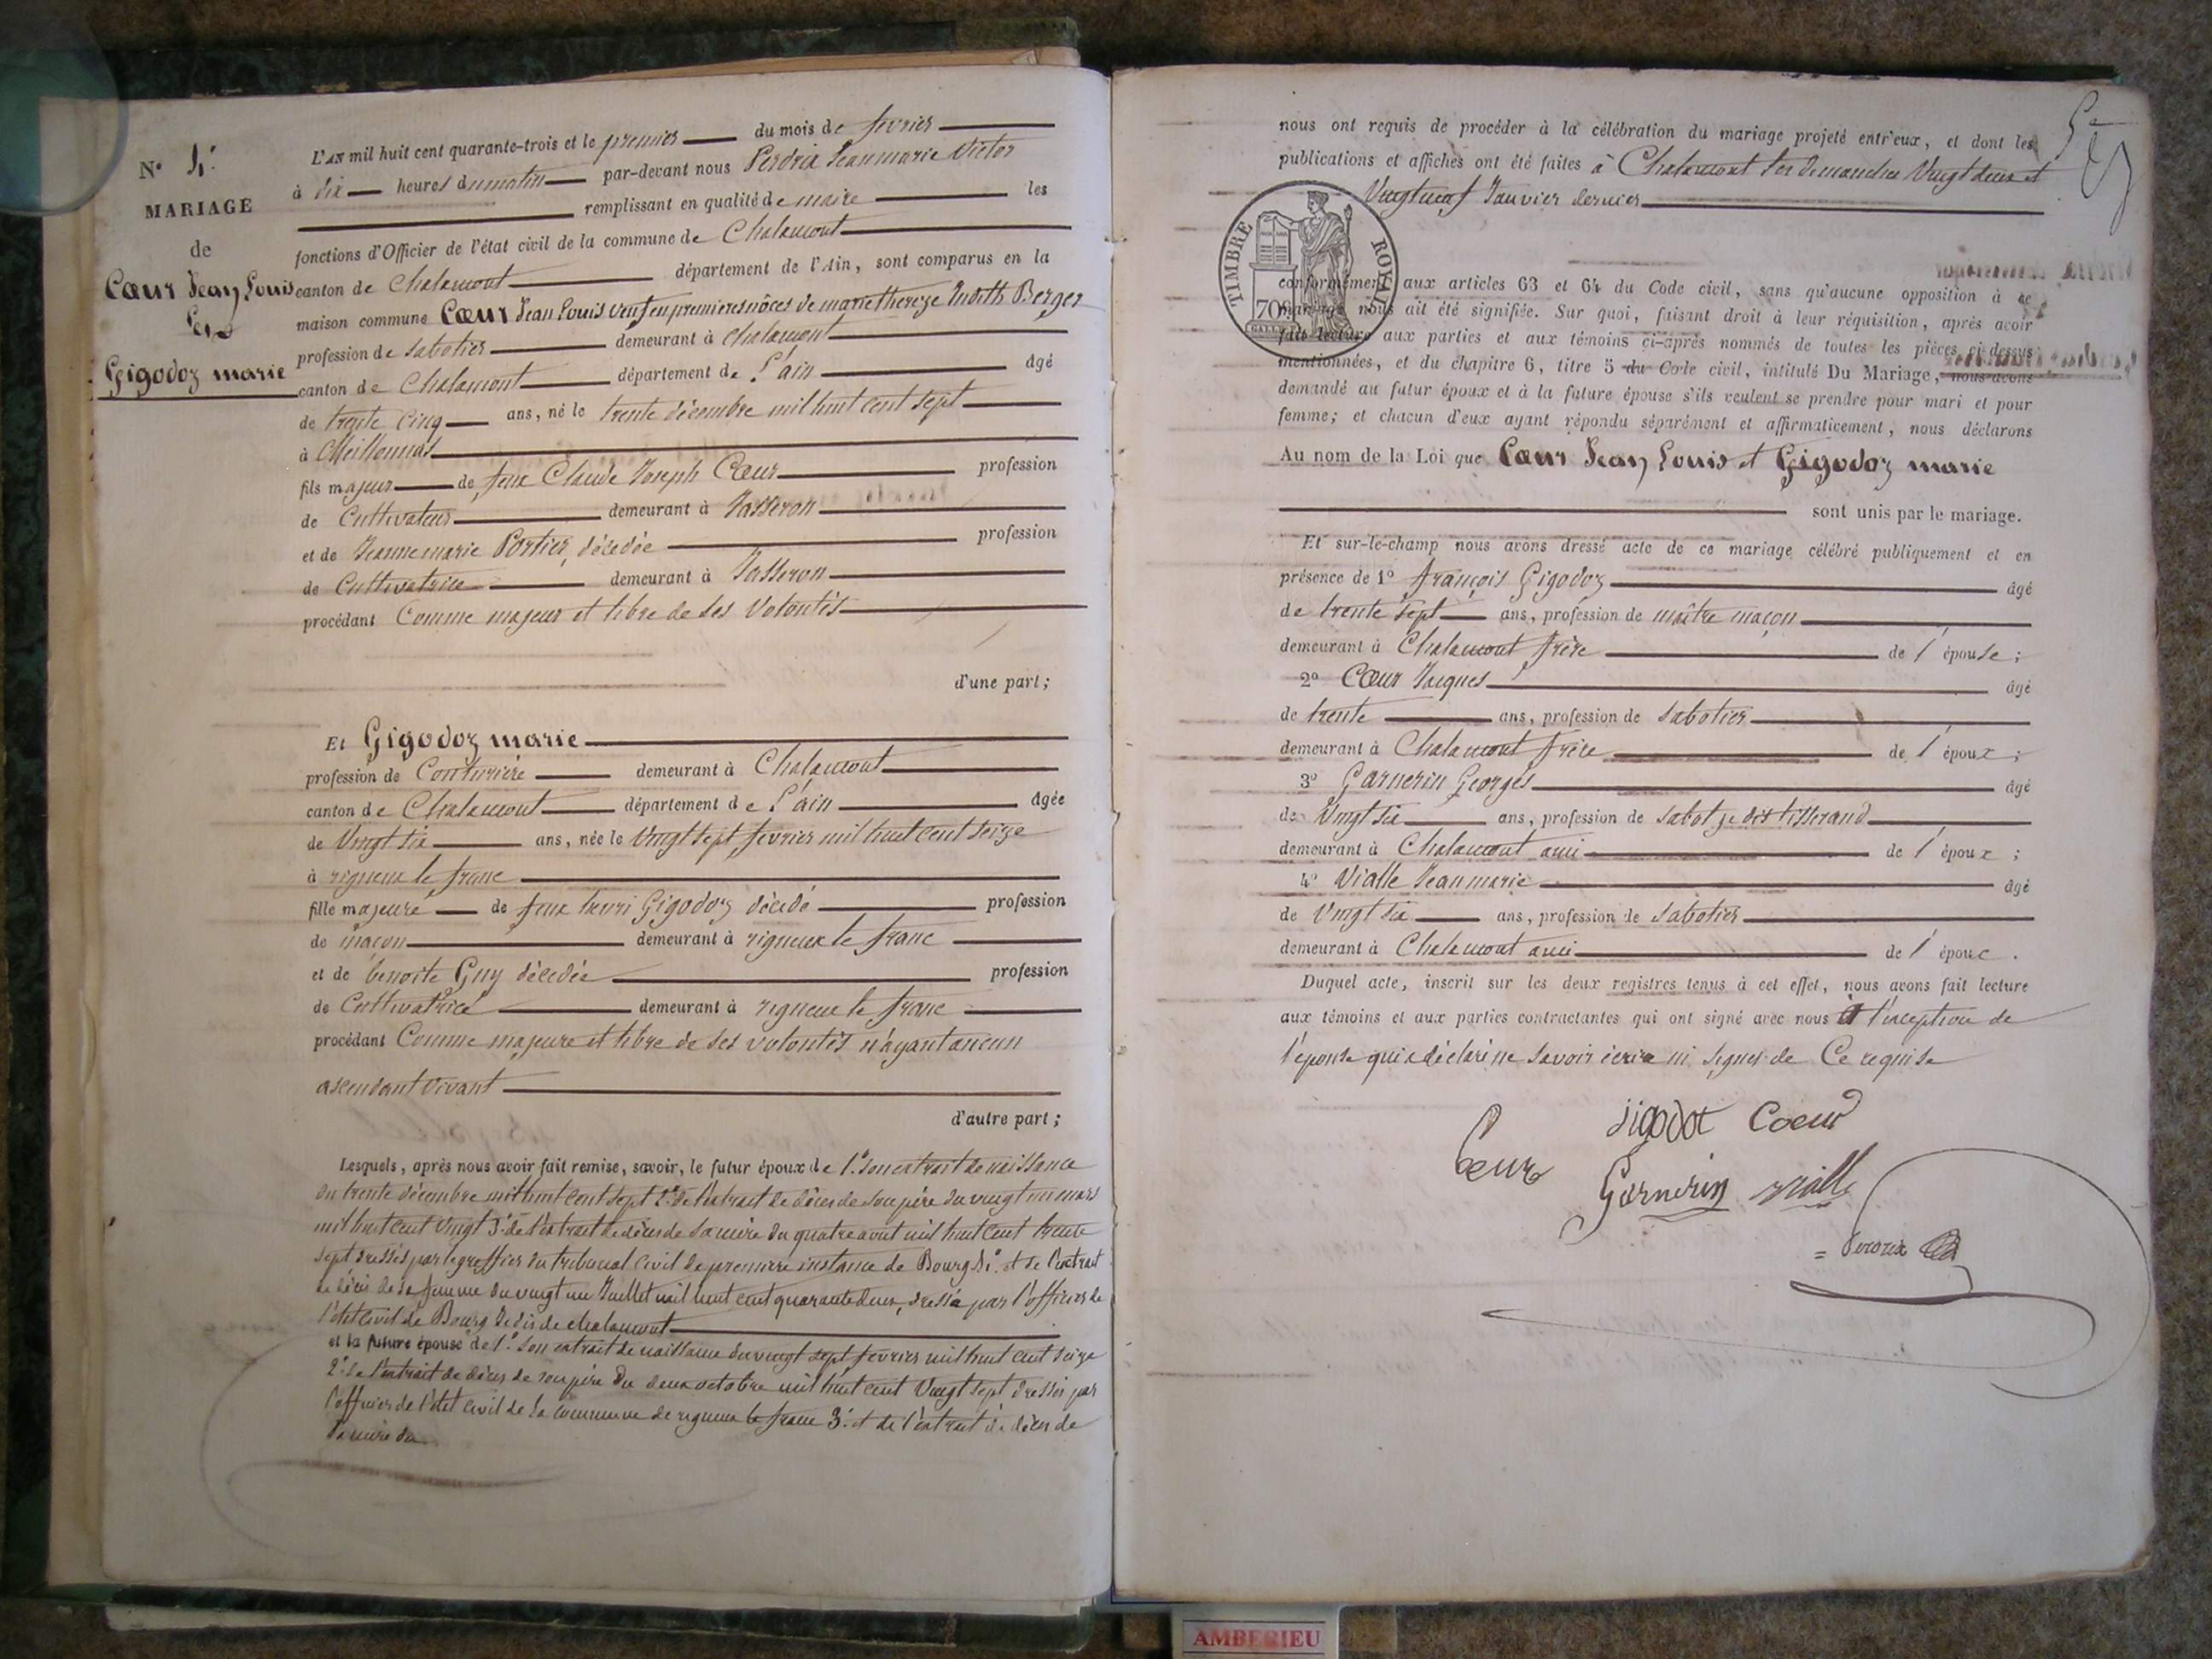 N° 4.
MARIAGE
de
Cœur Jean Louis
Et
Gigodoz marie
L'AN mil huit cent quarante-trois et le premier du mois de fevrier
à dix heures du matin par-devant nous Perdrix Jeanmarie Victor
remplissant en qualité de maire les
fonctions d'Officier de l'état civil de la commune de Chalamont
canton de Chalamont département de l'Ain, sont comparus en la
maison commune Cœur Jean Louis veuf en premieres nôces de marie thereze Judith Berger
profession de sabotier demeurant à chalamont
canton de Chalamont département de L'ain âgé
de trente cinq ans, né le trente décembre mil huit cent sept
à Meillonnas
fils majeur de feux Claude Joseph Cœur profession
de Cultivateur demeurant à Jasseron
et de Jeannemarie Portier, décedée profession
de Cultivatrice demeurant à Jasseron
procédant Comme majeur et libre de ses Volontés
d'une part;
Et Gigodoz marie
profession de Couturière demeurant à Chalamont
canton de Chalamont département de L'ain âgée
de Vingt six ans, née le Vingt sept fevrier mil huit cent seize
à rigneux le franc
fille majeure de feux henri Gigodoz décédé profession
de maçon demeurant à rigneux le franc
et de benoite Guy décedée profession
de Cultivatrice demeurant à rigneux le franc
procédant Comme majeure et libre de ses volontés n'ayant aucun
ascendant vivant
d'autre part;
Lesquels, après nous avoir fait remise, savoir, le futur époux de 1.° son extrait de naissance
du trente décembre mil huit cent sept 2.° de l'extrait de décès de son père du vingt un mars
mil huit cent vingt 3.° de l'extrait de décès de sa mère du quatre avril mil huit cent trente
sept dressés par le greffier du tribunal civil de premiere instance de Bourg et de l'extrait
de décès de sa femme du vingt un Juillet mil huit cent quarante deux, dressé par l'officier de
l'état civil de chalamont
et la future épouse de 1.° son extrait de naissance du vingt sept fevrier mil huit cent seize
2.° de l'extrait de décès de son père du deux octobre mil huit cent Vingt sept dressés par
l'officier de l'état civil de la commune de rigneux le franc 3.° et de l'extrait de décès de
sa mère du
nous ont requis de procéder à la célébration du mariage projeté entr'eux, et dont les
publications et affiches ont été faites à Chalamont les dimanches Vingt deux et
Vingt neuf Janvier dernier
TIMBRE ROYAL
70
conformément aux articles 63 et 64 du Code civil, sans qu'aucune opposition à ce
mariage nous ait été signifiée. Sur quoi, faisant droit à leur réquisition, après avoir
fait lecture aux parties et aux témoins ci-après nommés de toutes les pièces ci-dessus
mentionnées, et du chapitre 6, titre 5 du Code civil, intitulé Du Mariage, nous avons
demandé au futur époux et à la future épouse s'ils veulent se prendre pour mari et pour
femme; et chacun d'eux ayant répondu séparément et affirmativement, nous déclarons
Au nom de la Loi que Cœur Jean Louis et Gigodoz marie
sont unis par le mariage.
Et sur-le-champ nous avons dressé acte de ce mariage célébré publiquement et en
présence de 1° françois Gigodoz âgé
de trente sept ans, profession de maître maçon
demeurant à Chalamont frère de l'épouse;
2° Cœur Jacques âgé
de trente ans, profession de sabotier
demeurant à Chalamont frère de l'époux;
3° Garnerin Georges âgé
de Vingt six ans, profession de sabot je dis tisserand
demeurant à Chalamont ami de l'époux;
4° Vialle Jeanmarie âgé
de Vingt six ans, profession de sabotier
demeurant à Chalamont ami de l'époux.
Duquel acte, inscrit sur les deux registres tenus à cet effet, nous avons fait lecture
aux témoins et aux parties contractantes qui ont signé avec nous à l'exception de
l'épouse qui a déclaré ne savoir écrire ni signer de Ce requise
jigodot Coeur
Coeur
Garnerin vialle
Perdrix
AMBERIEU